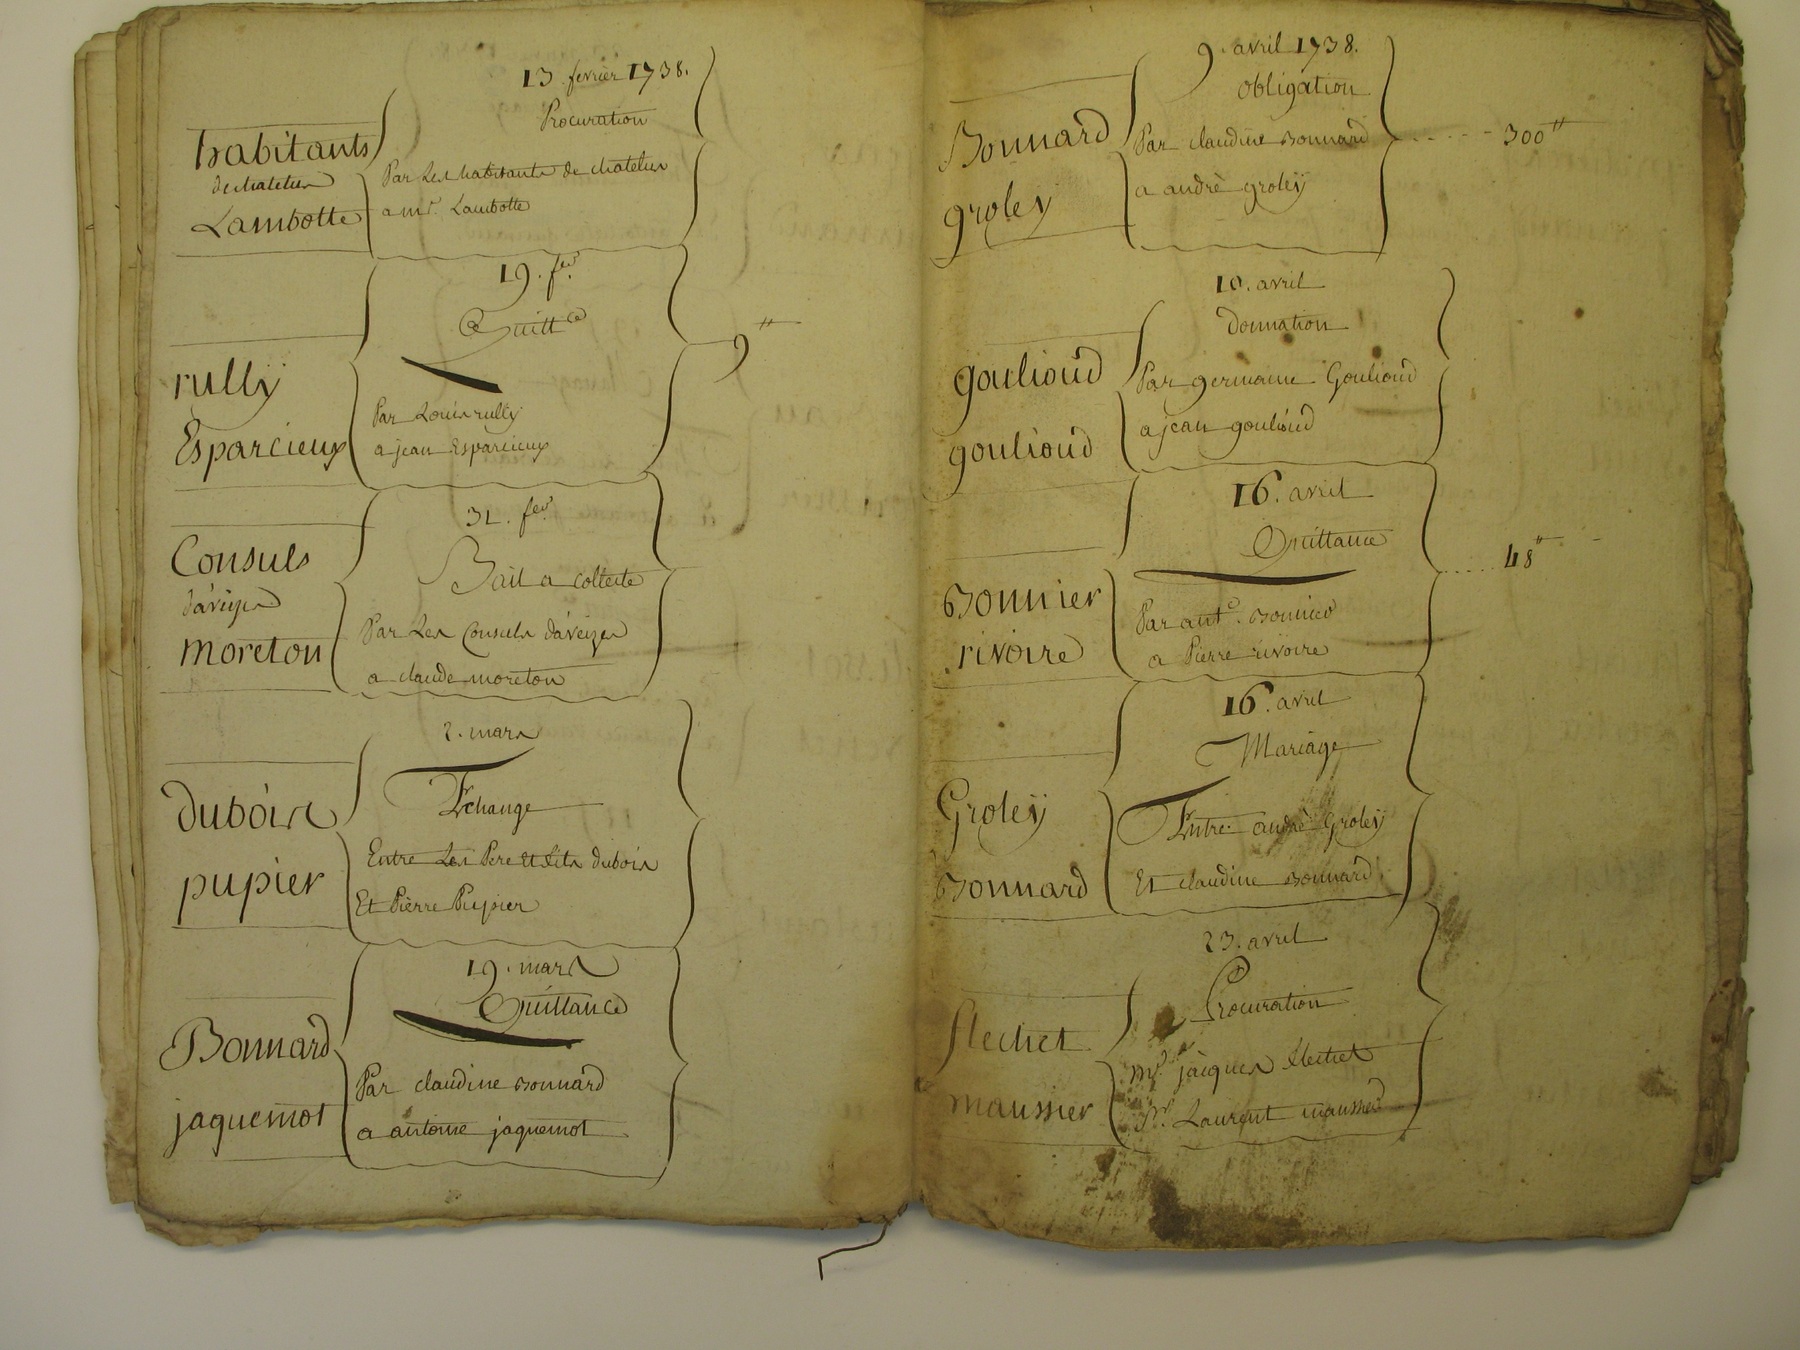 13 fevrier 1738.
Procuration
habitants
de chatelus
Lambotte
Par Les habitants de chatelus
a mr. Lambotte
19. fer.
Quitt.ce
9"
rully
Esparcieux
Par Louis rully
a jean Esparcieux
31. fer.
Consuls
d'aveizes
moreton
Bail a collecte
Par Les Consuls d'aveizes
a claude moreton
2. mars
Echange
dubois
pupier
Entre Les Pere et fils dubois
Et Pierre Pupier
19. mars
Quittance
Bonnard
jaquemot
Par claudine Bonnard
a antoine jaquemot
9. avril 1738.
obligation
Bonnard
groley
Par claudine Bonnard
a andrè groleÿ
300"
10. avril
donnation
goulioud
goulioud
Par germaine Goulioud
a jean goulioud
16. avril
Quittance
48"
Bonnier
rivoire
Par ant.e Bonnier
a Pierre rivoire
16. avril
Mariage
Groleÿ
Bonnard
Entre andrè Groleÿ
Et claudine Bonnard
23. avril
Procuration
flechet
maussier
mr. jàcques flechet
Sr. Laurent maussier